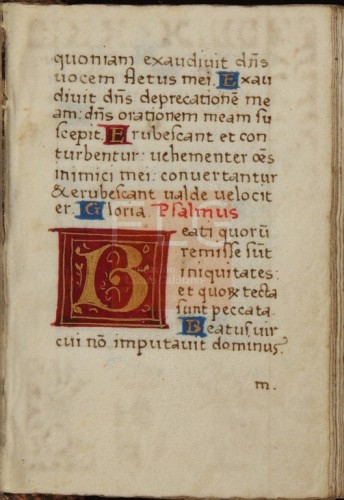 quoniam exaudivit dn̄s
vocem fletus mei. Exau
divit dn̄s deprecationē me
am: dn̄s orationem meam su
scepit. Erubescant et con
turbentur: vehementer oēs
inimici mei: convertantur
& erubescant valde velocit
er. Gloria. Psalmus
Beati quorū
remisse sūt
iniquitates:
et quorꝝ tecta
sunt peccata.
Beatus vir
cui nō imputavit dominus
m.